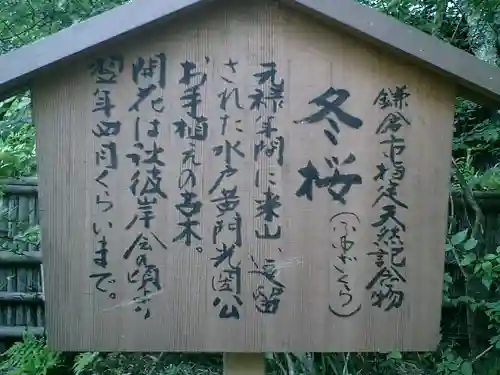 鎌倉市指定天然記念物
冬桜
(ふゆざくら)
元禄年間に来山、逗留
された水戸黄門光圀公
お手植えの古木。
開花は秋彼岸会の頃から
翌年四月くらいまで。